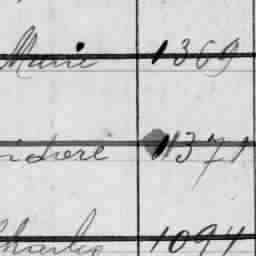 Marie 1369
1371
Charles 1094